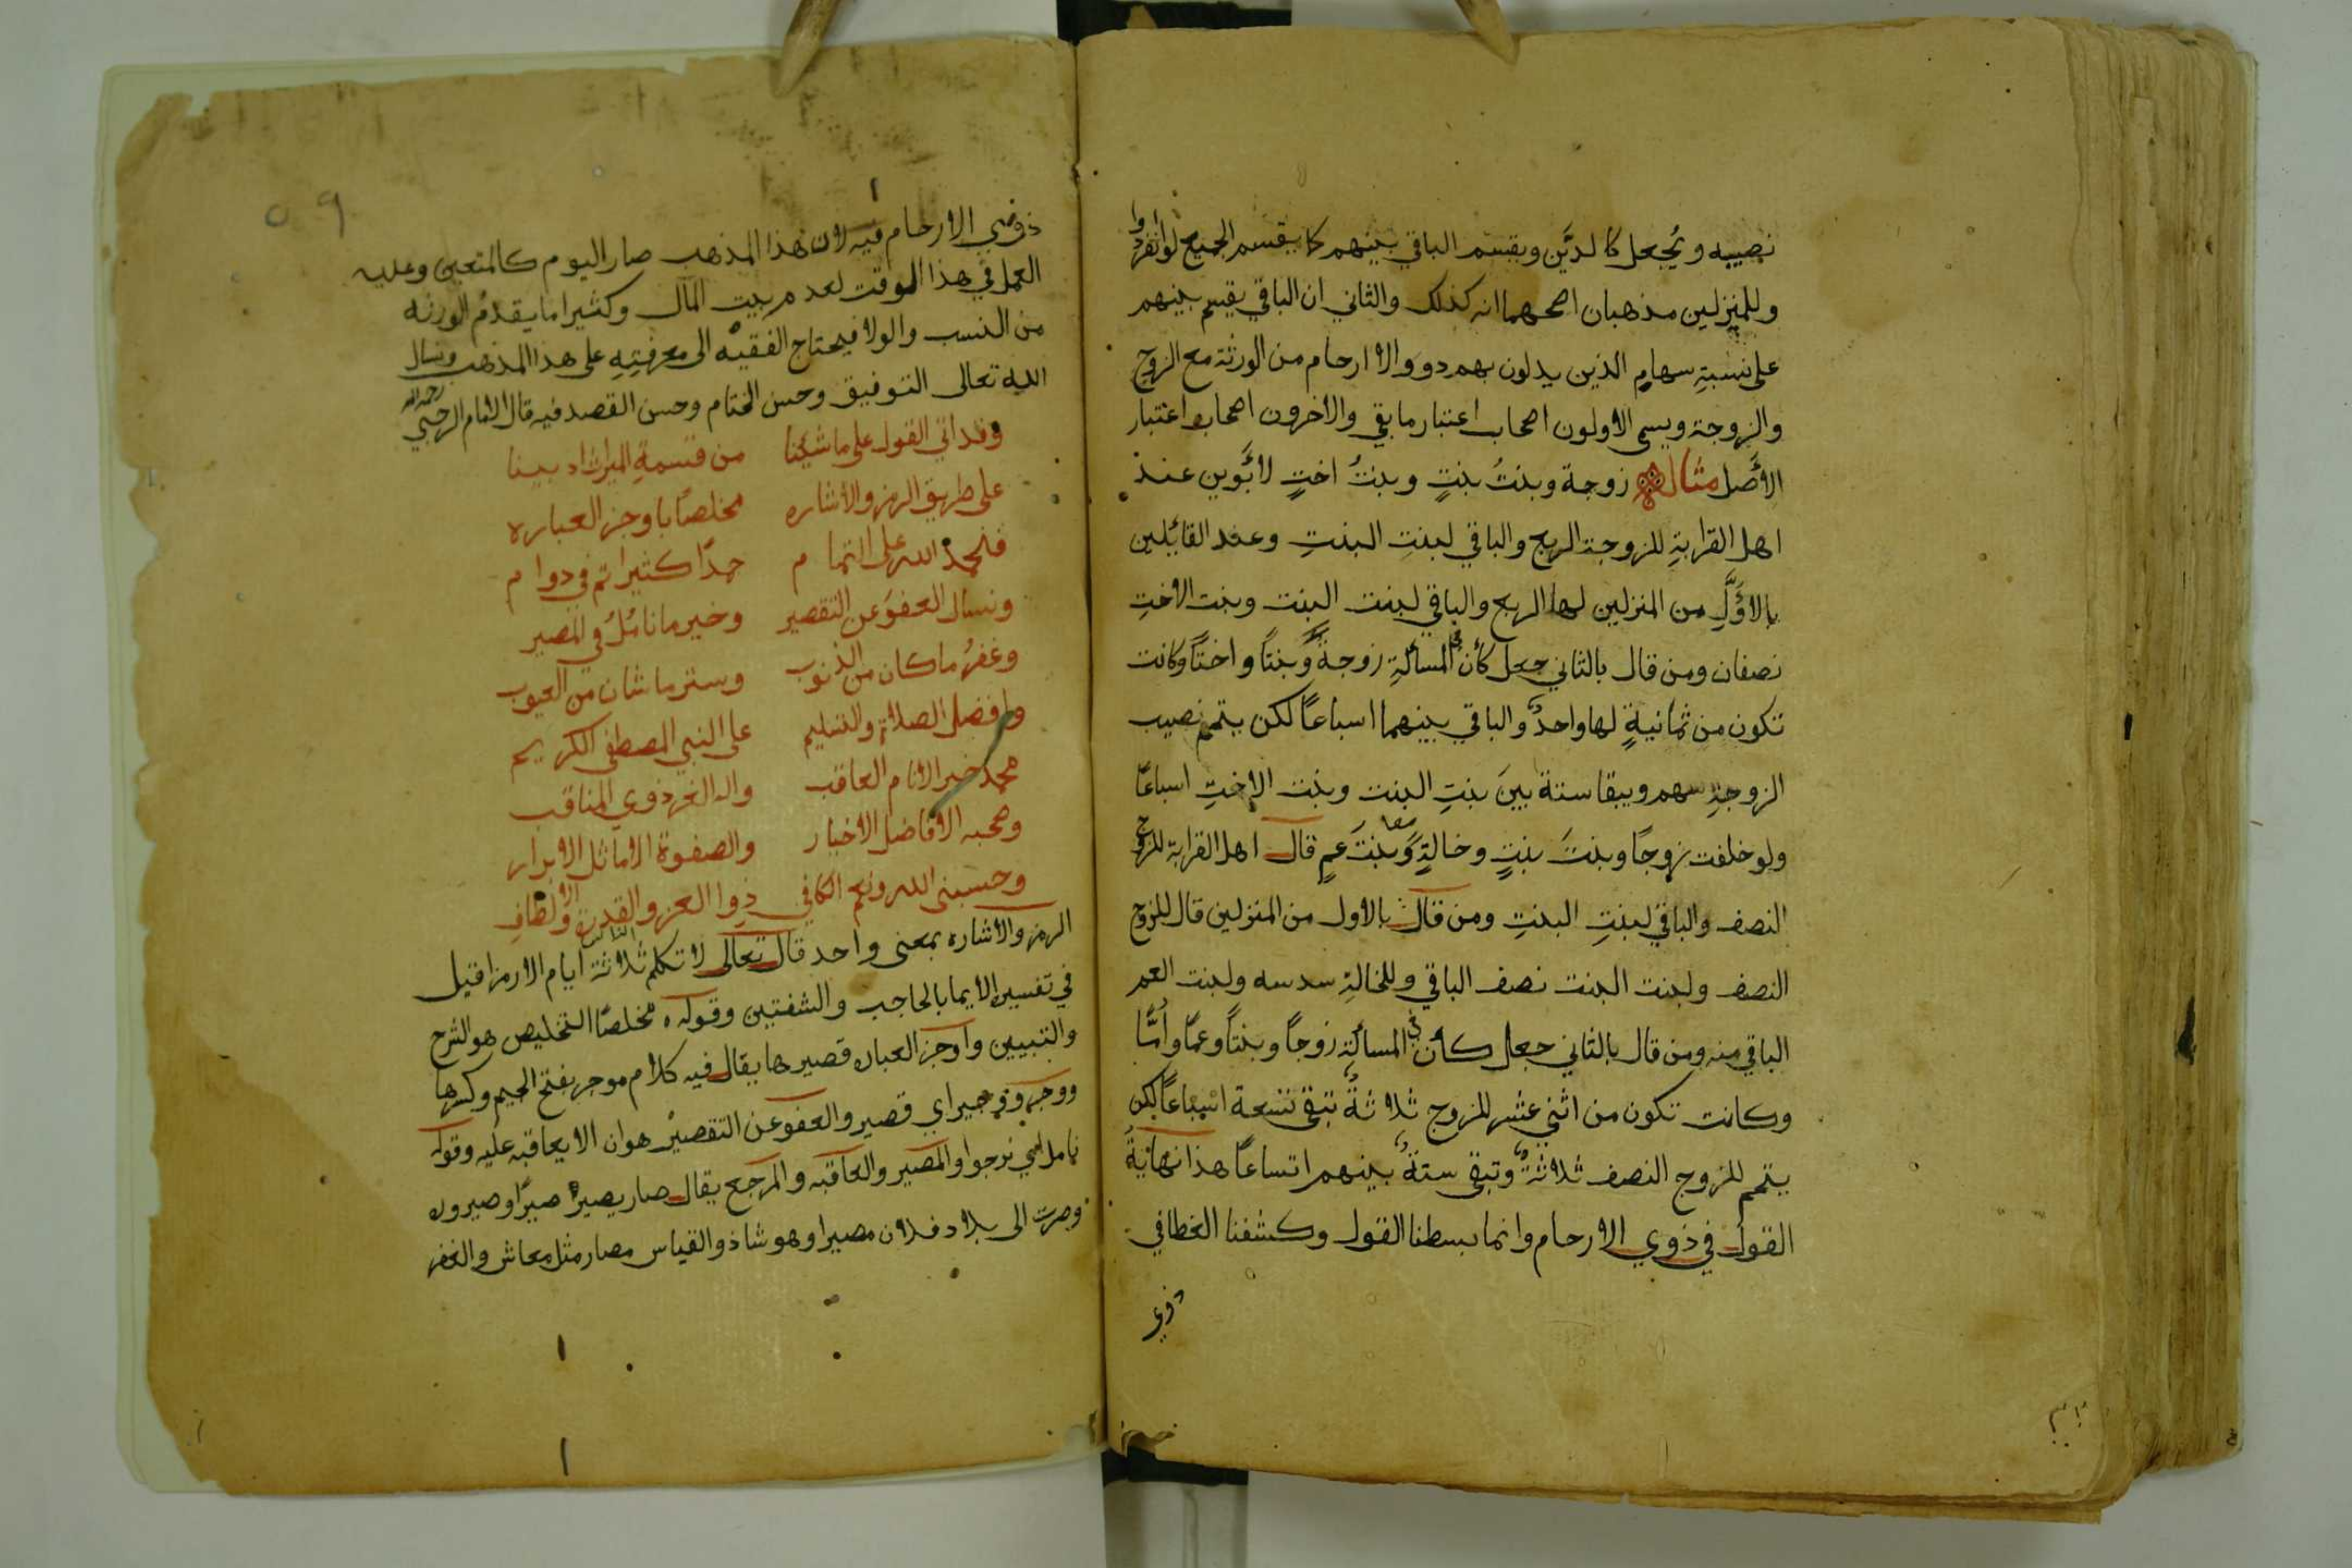 نصيبه ويُجعل كالدَّين ويقسم الباقي بينهم كما يقسم الجميع لو انفردوا
وللمنزلين مذهبان اصحهما انه كذلك والثاني ان الباقي يقسم بينهم
على نسبةِ سهامِ الذين يدلون بهم ذووا الارحام من الورثة مع الزوج
والزوجة ويسمى الاولون اصحاب اعتبار ما بقي والاخرون اصحاب اعتبار
الأَصل مثال زوجة وبنتُ بنتٍ وبنتُ اختٍ لأبَوين عند
اهل القرابةِ للزوجة الربع والباقي لبنتِ البنتِ وعند القائلين
بالاوَّلِ من المنزلين لها الربع والباقي لبنت البنت وبنت الاختِ
نصفان ومن قال بالثاني جعل كأن في المسألةِ زوجةً وبنتاً واختاً وكانت
تكون من ثمانيةٍ لها واحدٌ والباقي بينهما اسباعاً لكن يتمم نصيب
الزوجةِ سهم ويبقا ستة بينَ بنتِ البنت وبنت الاختِ اسباعًا
ولو خلفت زوجًا وبنتَ بنتٍ وخالةٍ وبنتَ عمٍ قال اهل القرابة للزوج
النصف والباقي لبنتِ البنتِ ومن قال بالاول من المنزلين قال للزوج
النصف ولبنت البنت نصف الباقي وللخالةِ سدسه ولبنت العم
الباقي منه ومن قال بالثاني جعل كأن في المسألةِ زوجاً وبنتاً وعمًا وأُمًّا
وكانت تكون من اثني عشر للزوج ثلاثةٌ تبقى تسعة اسباعاً لكن
يتمم للزوج النصف ثلاثةٌ وتبقى ستةٌ بينهم اتساعاً هذا نهايةُ
القول في ذوي الارحام وانما بسطنا القول وكشفنا الغطا في
ذوي
ذوي الارحام فيه لان هذا المذهب صار اليوم كالمتعين وعليه
العمل في هذا الوقت لعدم بيت المال وكثيرا ما يقدم الورثه
من النسب والولا فيحتاج الفقيه الى معرفتِهِ على هذا المذهب ونسال
الله تعالى التوفيق وحسن الختام وحسن القصد فيه قال الامام الرحبي رحمه الله
وقد اتى القول على ما شئنا من قسمةِ الميراث اذ بينا
على طريق الرمز والاشاره مخلصًا باوجز العباره
فالحمد الله على التمام حمدًا كثيرا تم في دوام
ونسال العفوَ عن التقصير وخير ما ناملُ في المصير
وغفرُ ما كان من الذنوب وستر ما شان من العيوب
وافضل الصلاة والتسليم على النبي المصطفى الكريم
محمد خير الانام العاقب واله الغر ذوي المناقب
وصحبه الافاضل الاخيار والصفوة الاماثل الابرار
وحسبنى الله ونعم الكافي ذوا العز والقدرة والالطافِ
الرمز والاشاره بمعنى واحد قال تعالى لا تكلم الناس ثلاثة ايام الا رمزا قيل
في تفسيره الايما بالحاجب والشفتين وقوله مخلصًا التخليص هو الشرح
والتبيين واوجز العباره قصيرها يقال فيه كلام موجز بفتح الجيم وكسرها
ووجز ووجيز اي قصير والعفو عن التقصير هو ان لا يعاقبه عليه وقوله
نامل اي نرجوا والمصير والعاقبه والمرجع يقال صار يصير صيرًا وصيروره
وصرت الى بلاد فلان مصيرا وهو شاذ والقياس مصار مثل معاش والغفر